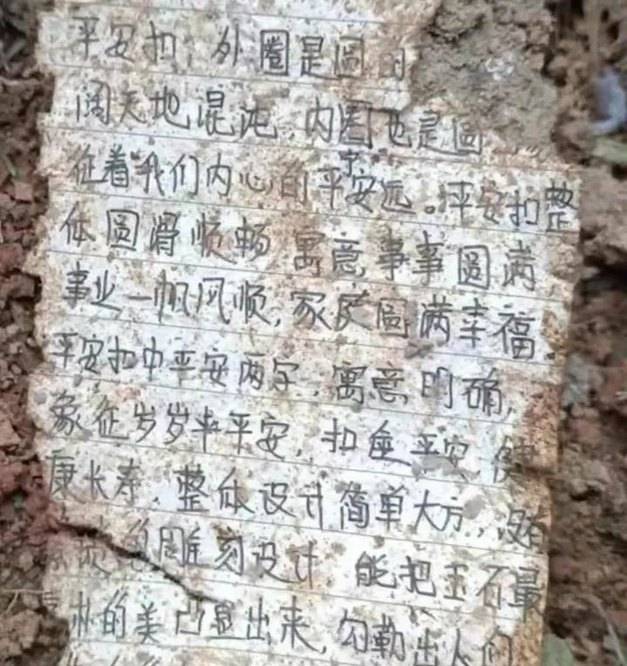 平安扣,外圈是圆的
阔天地混沌,内圈也是圆
征着我们内心的平安宁远。平安扣整
体圆滑顺畅 寓意事事圆满
事业一帆风顺,家庭圆满幸福。
平安扣中平安两字,寓意明确,
象征岁岁平平安,扣住平安,健
康长寿,整体设计简单大方,没有
雕刻设计 能把玉石最
的美凸显出来,勾勒出人们